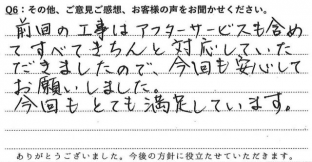 Q6：その他、ご意見ご感想、お客様の声をお聞かせください。
前回の工事はアフターサービスも含め
てすべてきちんと対応していた
だきましたので、今回も安心して
お願いしました。
今回もとても満足しています。
ありがとうございました。今後の方針に役立たせていただきます。